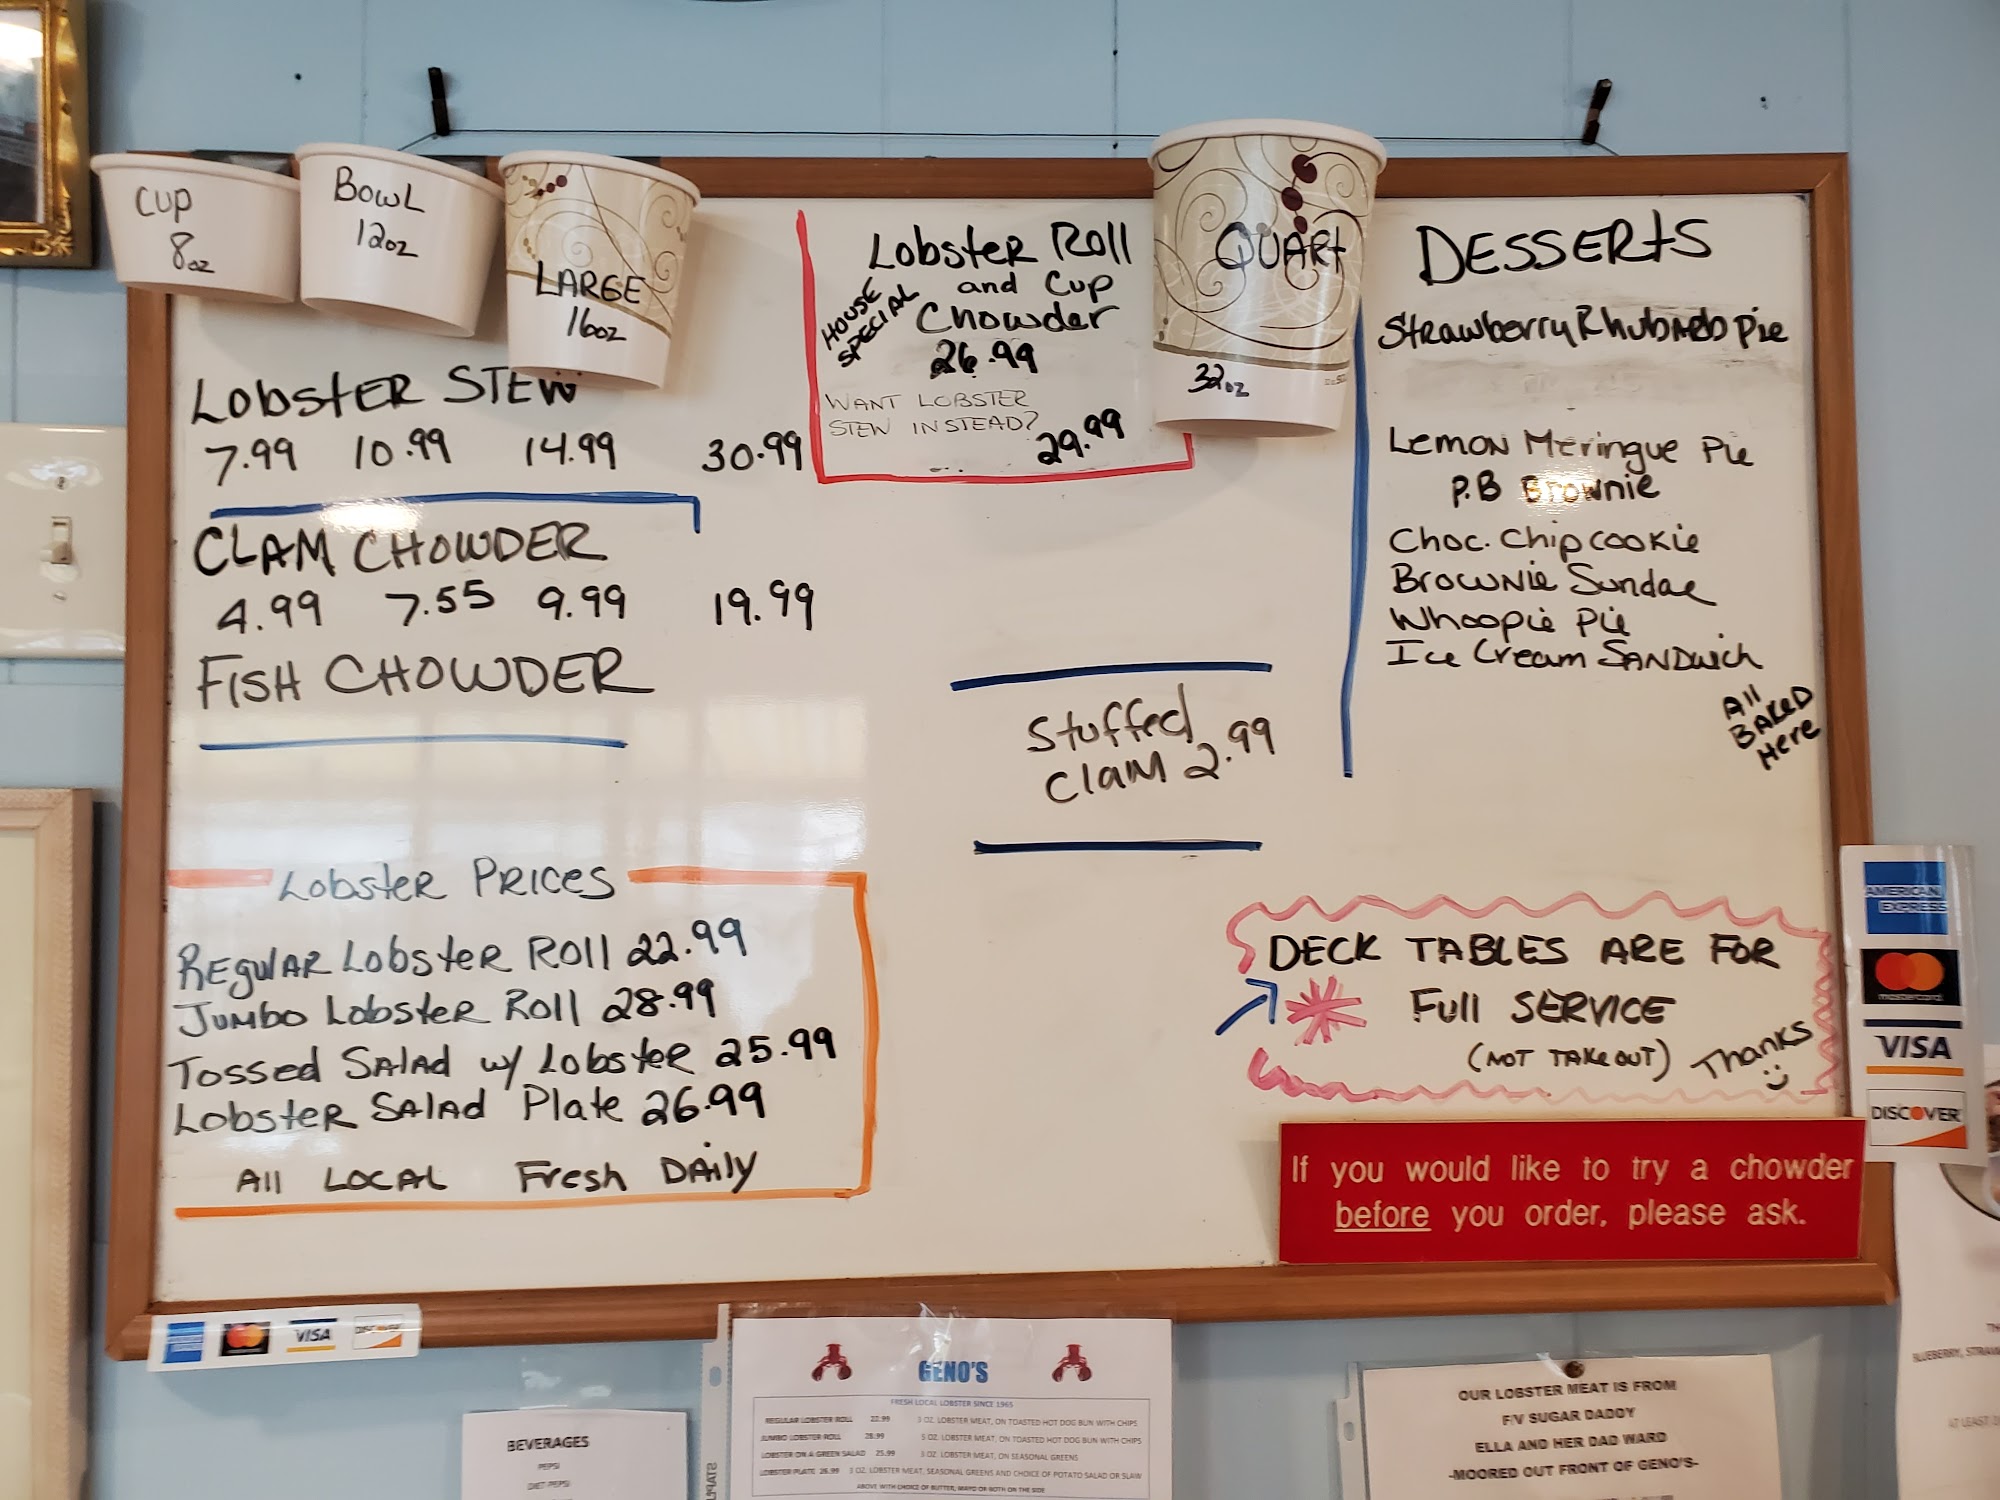 CUP
8oz
BOWL
12oz
LARGE
16oz
QUARt
32oz
LObSTER STEW
7.99 10.99 14.99 30.99
CLAM CHOWDER
4.99 7.55 9.99 19.99
FISH CHOWDER
LobsteR PRICES
REgulAR LobsteR Roll 22.99
JUMBO LobsteR Roll 28.99
Tossed SAlAd w/ Lobster 25.99
LobsteR SAlAd Plate 26.99
All LOCAL Fresh DAily
LobsteR Roll
and Cup
Chowder
HOUSE
SPECIAL
26.99
WANT LOBSTER
STEW INSTEAD?
29.99
Stuffed
ClaM 2.99
DESSERtS
StrawberryRhubARb Pie
LemoN Meringue Pie
P.B Brownie
Choc. Chip cookie
BrowNie Sundae
Whoopie Pie
Ice Cream SANDwich
All
BAKeD
Here
DECK TABLES ARE FOR
Full SERVICE
(NOT TAKE OUT)
Thanks
If you would like to try a chowder
before you order, please ask.
AMERICAN EXPRESS
mastercard
VISA
DISCOVER
AMERICAN EXPRESS
VISA
DISCOVER
BEVERAGES
PEPSI
DIET PEPSI
GENO'S
FRESH LOCAL LOBSTER SINCE 1965
REGULAR LOBSTER ROLL 22.99 3 OZ. LOBSTER MEAT, ON TOASTED HOT DOG BUN WITH CHIPS
JUMBO LOBSTER ROLL 28.99 5 OZ. LOBSTER MEAT, ON TOASTED HOT DOG BUN WITH CHIPS
LOBSTER ON A GREEN SALAD 25.99 3 OZ. LOBSTER MEAT, ON SEASONAL GREENS
LOBSTER PLATE 26.99 3 OZ. LOBSTER MEAT, SEASONAL GREENS AND CHOICE OF POTATO SALAD OR SLAW
ABOVE WITH CHOICE OF BUTTER, MAYO OR BOTH ON THE SIDE
OUR LOBSTER MEAT IS FROM
F/V SUGAR DADDY
ELLA AND HER DAD WARD
-MOORED OUT FRONT OF GENO'S-